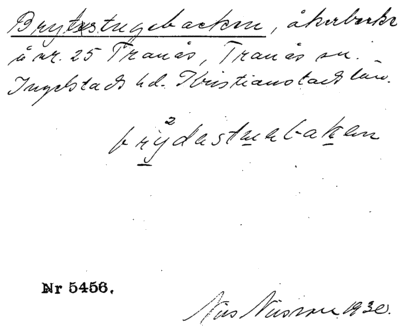 Brytestugebacken, åkerbackе
å nr. 25 Tranås, Tranås sn.
Ingelstads hd. Kristianstads län.
brydastuebaken
Nr 5456.
Nils Nilsson 1930.